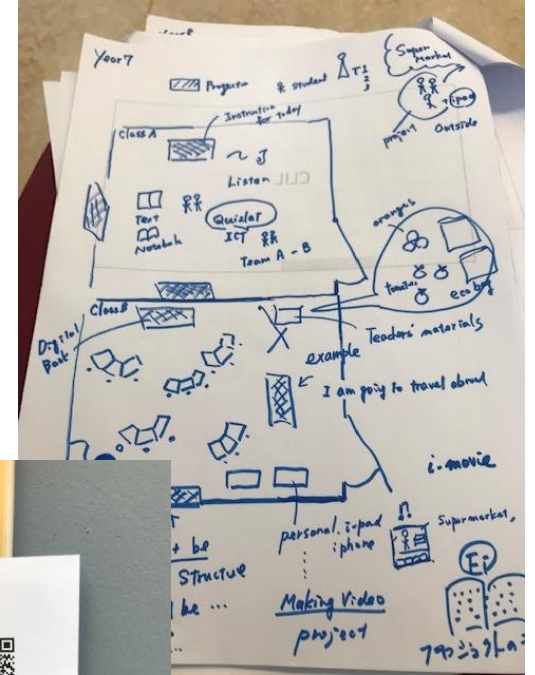 Year 7
Projector
student
T 1
2
3
Super
Market
project
ipad
Outside
Instruction
for today
Class A
Listen
CLIL
Text
Notebook
Quizlet
ICT
Team A - B
oranges
eco bag
Class B
Digital
Book
Teachers' materials
example
I am going to travel abroad
i-movie
personal. i-pad
iphone
Supermarket,
+ be
Structure
be ...
Making Video
project
Ei